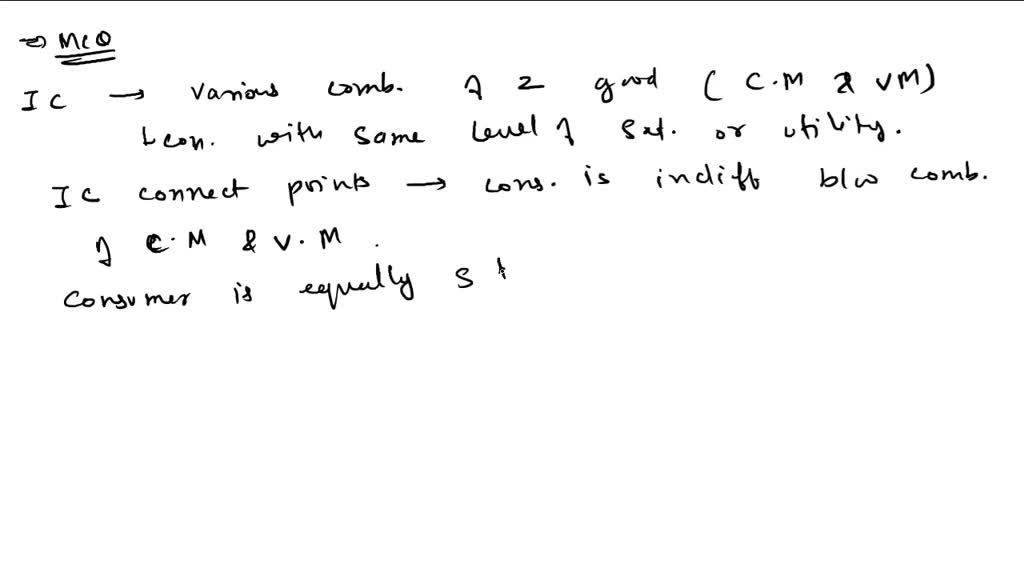 ⇒ MCQ
IC → various comb. of 2 good (C.M & VM)
con. with same level of sat. or utility.
IC connect points → cons. is indiff b/w comb.
of C.M & V.M.
Consumer is equally s